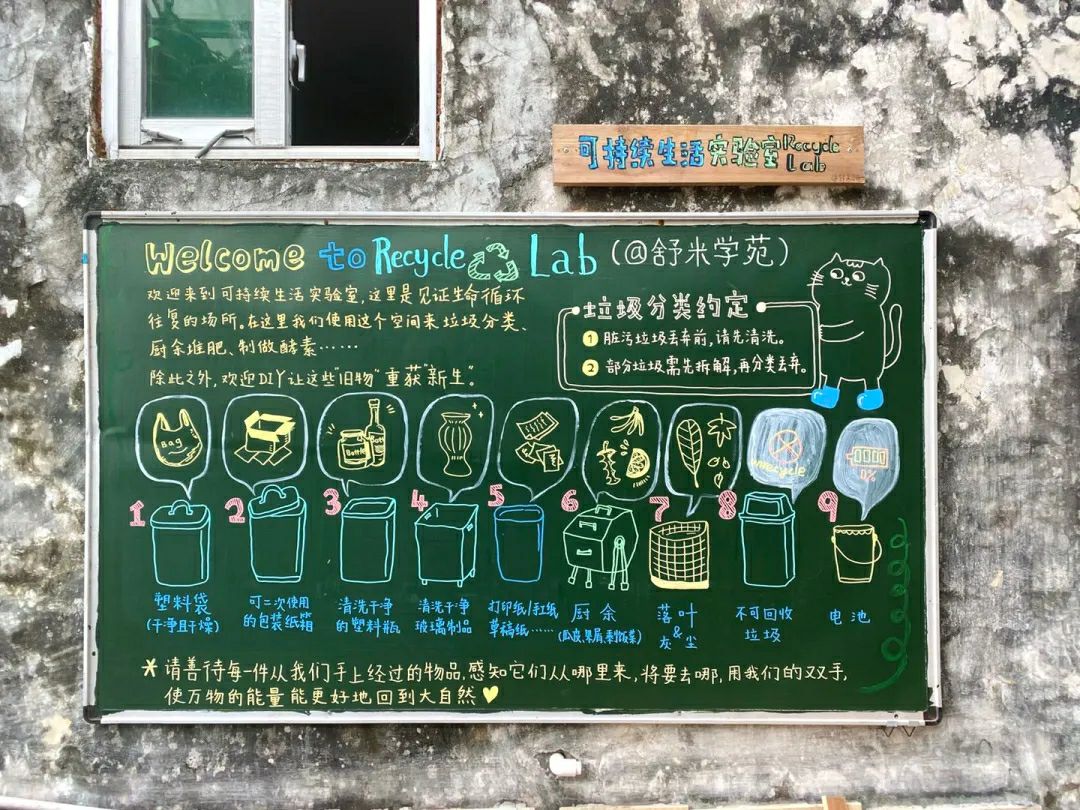 可持续生活实验室 Recycle Lab
Welcome to Recycle Lab (@舒米学苑)
欢迎来到可持续生活实验室,这里是见证生命循环
往复的场所。在这里我们使用这个空间来垃圾分类、
厨余堆肥、制做酵素……
除此之外,欢迎DIY让这些"旧物"重获"新生"。
垃圾分类约定
1 脏污垃圾丢弃前,请先清洗。
2 部分垃圾需先拆解,再分类丢弃。
Bag
Bottle
Butt
unrecycle
0%
1 2 3 4 5 6 7 8 9
塑料袋
(干净且干燥)
可二次使用
的包装纸箱
清洗干净
的塑料瓶
清洗干净
玻璃制品
打印纸/手工纸
草稿纸……
厨余
(瓜皮、果屑、剩饭菜)
落叶
&
灰尘
不可回收
垃圾
电池
*请善待每一件从我们手上经过的物品,感知它们从哪里来,将要去哪,用我们的双手,
使万物的能量能更好地回到大自然